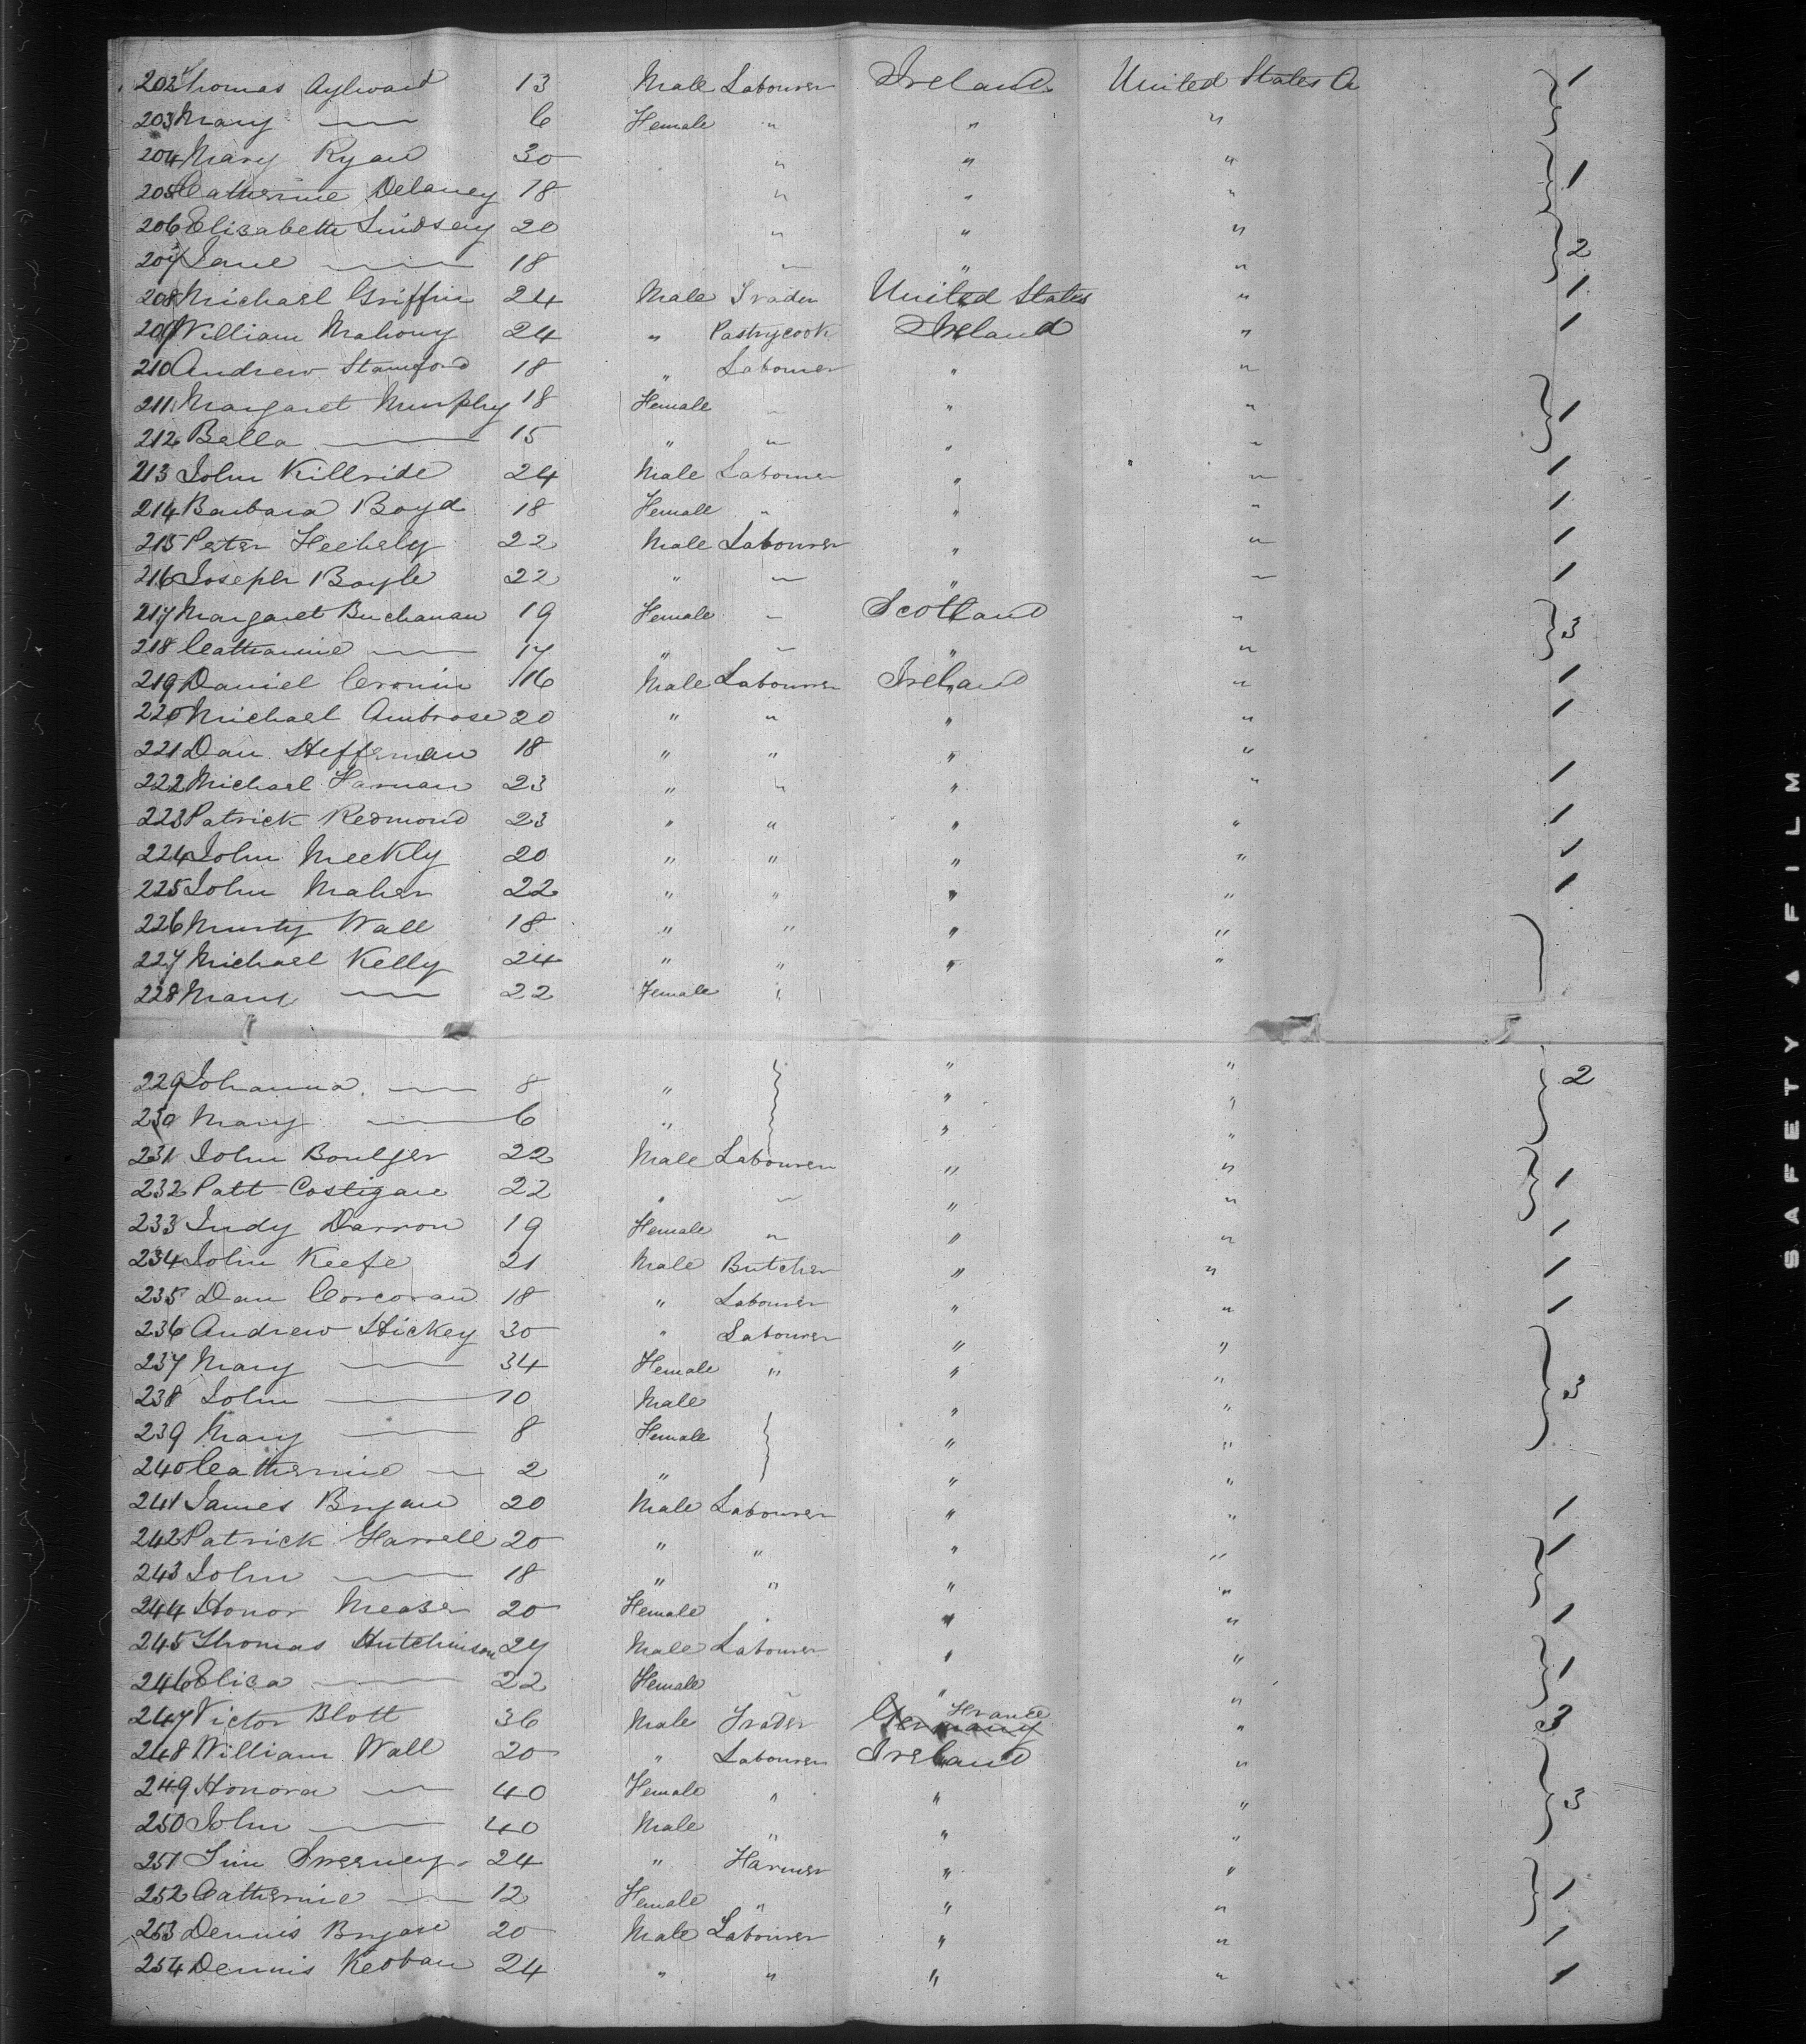 202 Thomas Aylward 13 Male Labourer Ireland United States A 1
203 Mary —— 6 Female " " "
204 Mary Ryan 30 " " "
205 Catherine Delaney 18 " " " 1
206 Elisabeth Lindsey 20 " " "
207 Jane —— 18 " " " 2
208 Michael Griffin 24 Male Trader United States " 1
209 William Mahony 24 " Pastrycook Ireland " 1
210 Andrew Stamford 18 " Labourer " "
211 Margaret Murphy 18 Female " " " 1
212 Bella —— 15 " " " "
213 John Killride 24 Male Labourer " " 1
214 Barbara Boyd 18 Female " " " 1
215 Peter Heehely 22 Male Labourer " " 1
216 Joseph Boyle 22 " " " " 1
217 Margaret Buchanan 19 Female " Scotland " 3
218 Catharine —— 17 " " " "
219 Daniel Cronin 16 Male Labourer Ireland " 1
220 Michael Ambrose 20 " " " " 1
221 Dan Heffernan 18 " " " "
222 Michael Harnan 23 " " " " 1
223 Patrick Redmond 23 " " " " 1
224 John Meekly 20 " " " " 1
225 John Maher 22 " " " " 1
226 Murty Wall 18 " " " "
227 Michael Kelly 24 " " " "
228 Mary —— 22 Female "
229 Johanna —— 8 " " " 2
230 Mary —— 6 " " "
231 John Boulger 22 Male Labourer " "
232 Patt Costigan 22 " " " " 1
233 Judy Darron 19 Female " " " 1
234 John Keefe 21 Male Butcher " " 1
235 Dan Corcoran 18 " Labourer " " 1
236 Andrew Hickey 30 " Labourer " "
237 Mary —— 34 Female " " "
238 John —— 10 Male " " 3
239 Mary —— 8 Female " "
240 Catherine —— 2 " " "
241 James Bryan 20 Male Labourer " " 1
242 Patrick Harrell 20 " " " " 1
243 John —— 18 " " " "
244 Honor Meaber 20 Female " " 1
245 Thomas Hutchinson 27 Male Labourer " "
246 Elisa —— 22 Female " " " 1
247 Victor Blott 36 Male Trader Germany France " 3
248 William Wall 20 " Labourer Ireland "
249 Honora —— 40 Female " " " 3
250 John —— 40 Male " " "
251 Jim Sweeney 24 " Farmer " "
252 Catherine —— 12 Female " " " 1
253 Dennis Bryan 20 Male Labourer " " 1
254 Dennis Keohan 24 " " " " 1
SAFETY A FILM